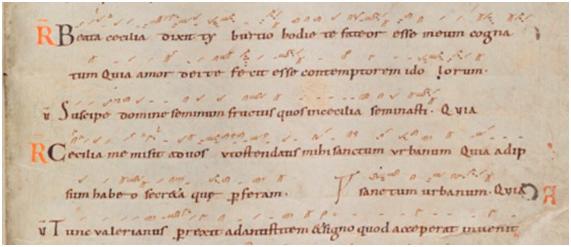 R Beata cecilia dixit ty burtio hodie te fateor esse meum cogna
tum Quia amor dei te fecit esse contemptorem ido lorum.
v Suscipe domine seminum fructus quos in cecilia seminasti. Quia
R Cecilia me misit ad vos ut ostendatis mihi sanctum urbanum Quia ad ip
sum habeo secreta quę perferam. sanctum urbanum. Quia
v Tunc valerianus prexit ad antistitem & signo quod acceperat invenit